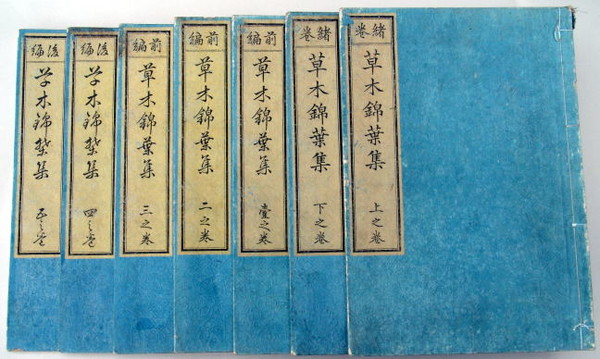 緒巻
草木錦葉集
上之卷
緒巻
草木錦葉集
下之卷
前編
草木錦葉集
壹之卷
前編
草木錦葉集
二之卷
前編
草木錦葉集
三之卷
後編
草木錦葉集
四之卷
後編
草木錦葉集
五之卷